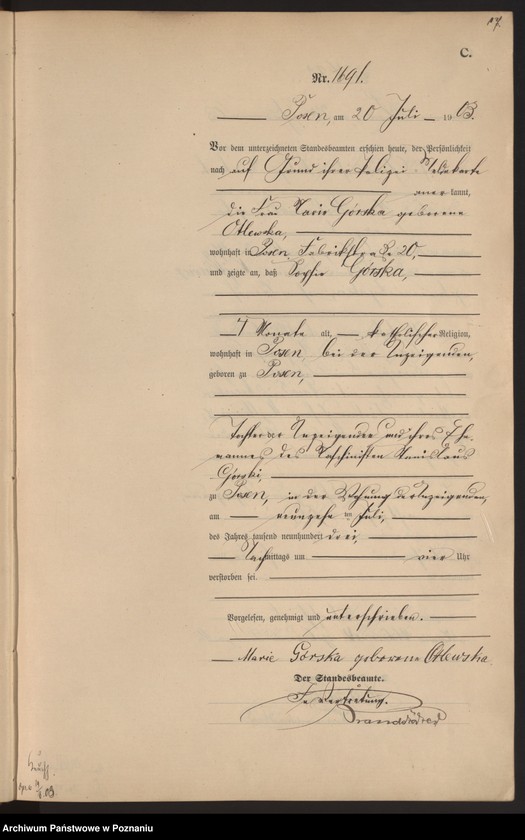 C.
Nr. 1691.
Posen, am 20 Juli 1903.
Vor dem unterzeichneten Standesbeamten erschien heute, der Persönlichkeit
nach auf Grund ihrer Polizei Meldekarte
anerkannt,
die Frau Marie Górska geborene
Otlewska,
wohnhaft in Posen Fabrikstraße 20,
und zeigte an, daß Sophie Górska,
7 Monate alt, katholischer Religion,
wohnhaft in Posen bei der Anzeigenden,
geboren zu Posen,
Tochter der Anzeigenden und ihres Ehe-
mannes, des Maschinisten Stanislaus
Górski,
zu Posen, in der Wohnung der Anzeigenden,
am neunzehn ten Juli,
des Jahres tausend neunhundert drei,
Nachmittags um vier Uhr
verstorben sei.
Vorgelesen, genehmigt und unterschrieben.
Marie Górska geborene Otlewska.
Der Standesbeamte.
In Vertretung.
03.
Archiwum Państwowe w Poznaniu